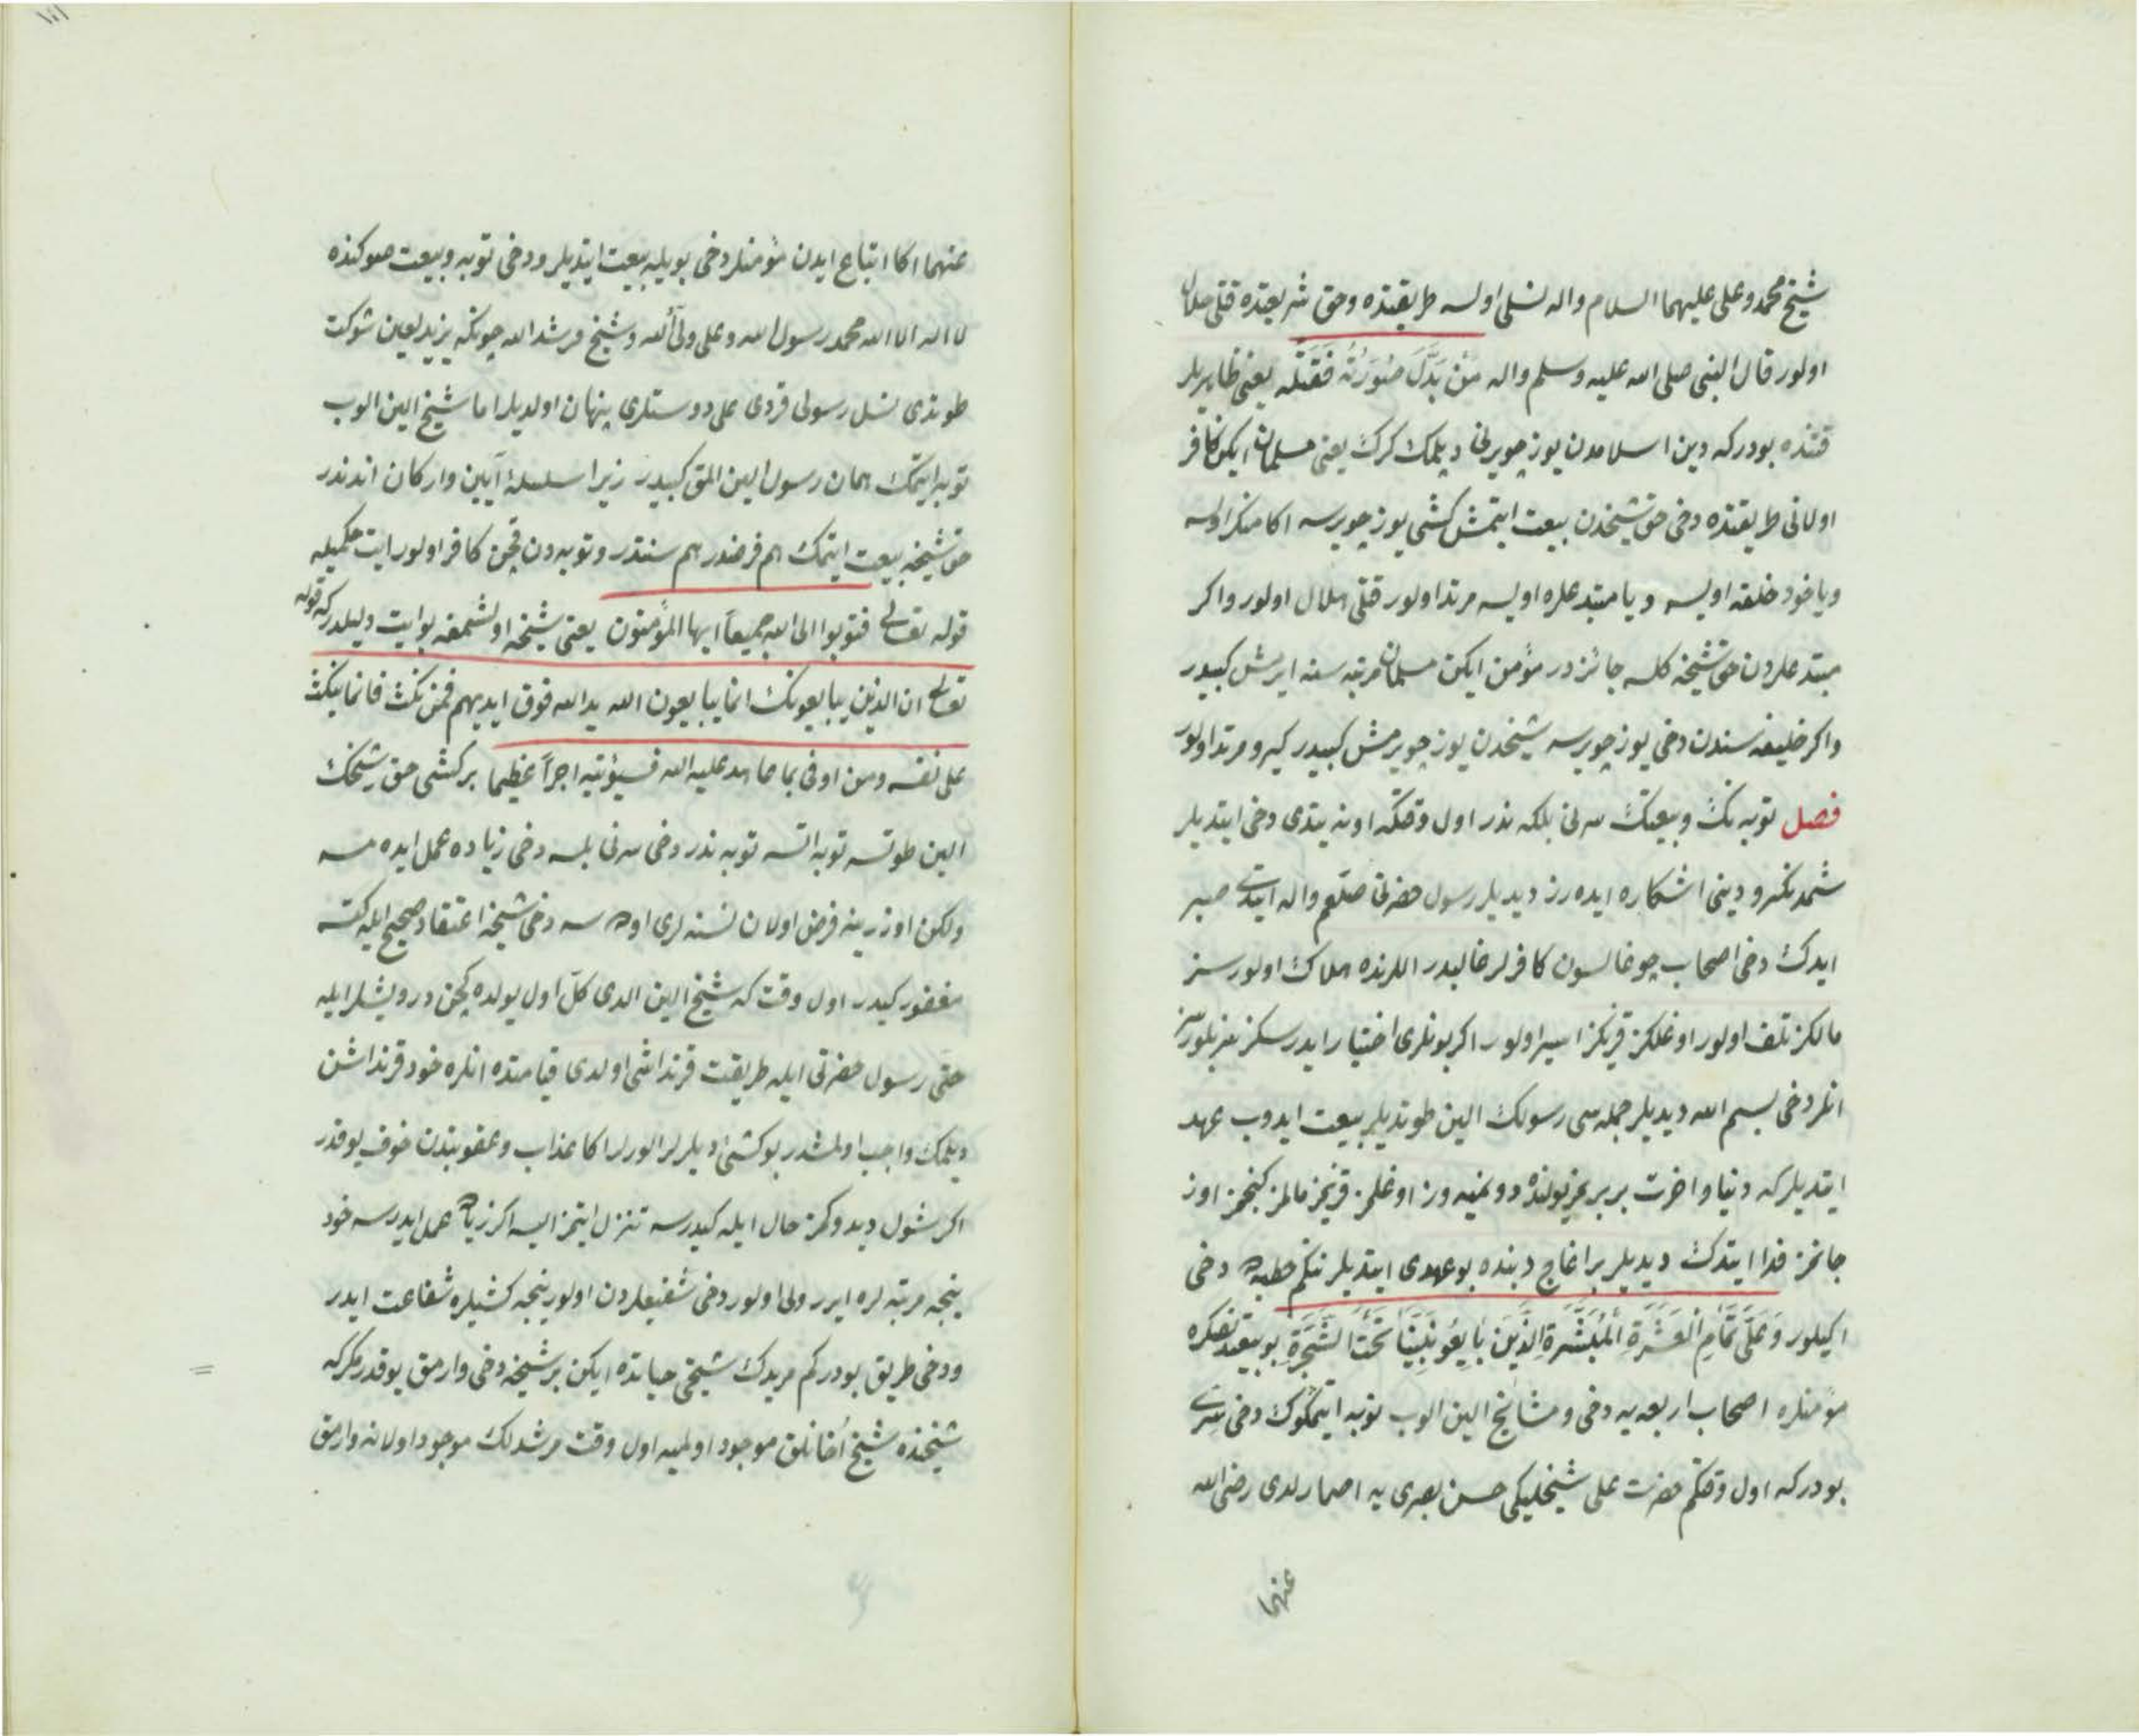 شیخ محمد و علی علیهما السلام واله نسلی اولسه طریقتده و حق شریعتده قتلی حلال
اولور قال النبی صلی الله علیه وسلم واله مَنْ بَدَّلَ صُورَتَهُ فَقَتَلَه یعنی ظاهریلر
قتنده بودرکه دین اسلامدن یوز چویرنی دپلمك کرك یعنی مسلمان ایکن کافر
اولانی طریقتده دخی حق شیخدن بیعت ایتمش کشی یوز چویرسه اکا منکر اولسه
ویا خود خلفه اویسه و یا مبتدعلره اویسه مرتد اولور قتلی حلال اولور واکر
مبتدعلردن حق شیخه کلسه جائزدر مؤمن ایکن مسلمان مرتبه سنه ایرمش کبیدر
واکر خلیفه سندن دخی یوز چویرسه شیخدن یوز چویرمش کبیدر کیرو مرتد اولور
فصل توبه نك وبیعتك سرنی بلکه ندر اول وقتکه اونه یتدی دخی ایتدیلر
شمدنکرو دینی اشکاره ایده رز دیدیلر رسول حضرتی صلعم واله ایتدی صبر
ایدك دخی اصحاب چوغالسون کافرلر غالبدر اللرنده هلاك اولورسز
مالکز تلف اولور اوغلکز قزیکز اسیر اولور اکر بونلری اختیار ایدرسکز سز بلورسز
انلر دخی بسم الله دیدیلر جمله سی رسولك الین طوتدیلر بیعت ایدوب عهد
ایتدیلرکه دنیا و اخرت بر بریمز یولنده دونمیه وز اوغلمز قزیمز مالمز کنجمز اوز
جانمز فدا ایتدك دیدیلر بر اغاج دبنده بو عهدی ایتدیلر نتکم خطبه ده دخی
اکیلور وَعَلَى تَمَامِ الْعَشَرَةِ الْمُبَشَّرَةِ الَّذِينَ بَايَعُو نَبِيَّنَا تَحْتَ الشَّجَرَةِ بو بیعتدنصکره
مؤمنلره اصحاب اربعه یه دخی و مشایخ الین الوب توبه ایتمکوك دخی سری
بودرکه اول وقتکم حضرت علی شیخلیکی حسن بصری یه اصمارلدی رضی الله
عنهما
عنهما اکا اتباع ایدن مؤمنلر دخی بویله بیعت ایتدیلر ودخی توبه وبیعت صوکنده
لا اله الا الله محمد رسول الله و علی ولی الله و شیخ مرشد الله چونکه یزید لعین شوکت
طوتدی نسل رسولی قردی علی دوستلری پنهان اولدیلر اما شیخ الین الوب
توبه ایتمك همان رسول الین المق کبیدر زیرا سلسلهٔ آیین وارکان اندندر
حق شیخه بیعت ایتمك هم فرضدر هم سنتدر وتوبه دن قچن کافر اولور ایت حکمیله
قوله تعالی فتوبوا الی الله جمیعاً ایها المؤمنون یعنی شیخه اولشمغه بو ایت دلیلدرکه قوله
تعالی ان الذین یبایعونك انما یبایعون الله ید الله فوق ایدیهم فمن نكث فانما ینكث
علی نفسه ومن اوفی بما عاهد علیه الله فسیؤتیه اجراً عظیما بر کشی حق شیخك
الین طوتسه توبه اتسه توبه ندر دخی سرنی بلسه دخی زیاده عمل ایده مسه
ولکن اوزرینه فرض اولان نسنه لری اوده سه دخی شیخه اعتقاد صحیح ایله کتسه
مغفور کیدر اول وقت که شیخ الین الدی کل اول یولده کچن درویشلر ایله
حتی رسول حضرتی ایله طریقت قرنداشی اولدی قیامتده انلره خود قرنداشن
دیلمك واجب اولمشدر بو کشی دیلرلر الورلر اکا عذاب و عقوبتدن خوف یوقدر
اکر شول دیدوکمز حال ایله کیدرسه تنزل ایتمز ایسه اکر زیاده عمل ایدرسه خود
نیجه مرتبه لره ایرر ولی اولور دخی شفیعلردن اولور نیجه کشیلره شفاعت ایدر
ودخی طریق بودرکم مریدك شیخی حیاتده ایکن بر شیخه دخی وارمق یوقدر مکرکه
شیخنده شیخ اغانلق موجود اولمیه اول وقت مرشدلك موجود اولانه وارمق